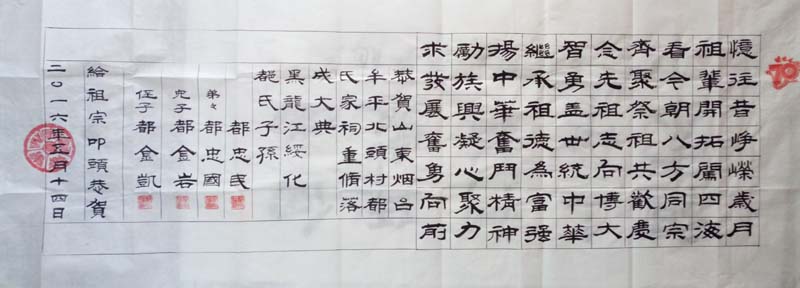 憶往昔崢嶸歲月
祖輩開拓闖四海
看今朝八方同宗
齊聚祭祖共歡慶
念先祖志向博大
智勇盖世統中華
繼承祖德為富强
揚中華奮鬥精神
勵族興凝心聚力
求發展奮勇向前
恭賀山東烟台
牟平北頭村都
氏家祠重脩落
成大典
黑龍江綏化
都氏子孫
都忠民
弟々都忠國
兒子都金岩
侄子都金凱
給祖宗叩頭恭賀
二〇一六年五月十四日